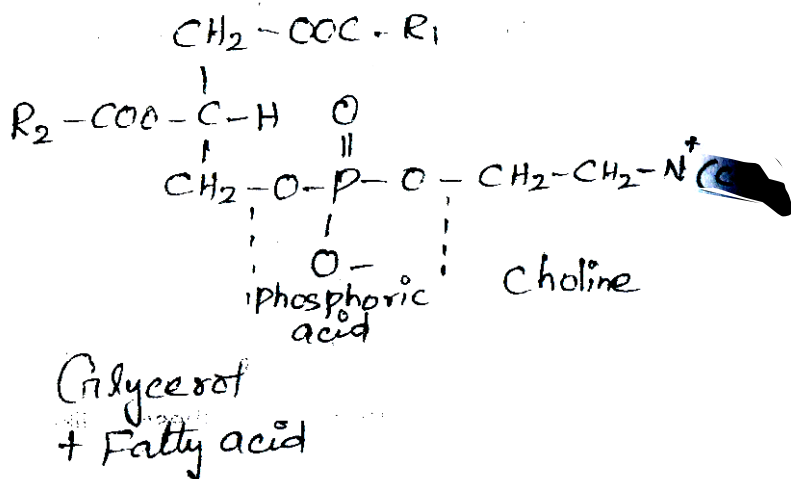 CH2 - COC - R1
R2 - COO - C - H O
CH2 - O - P - O - CH2 - CH2 - N+ (C
O -
Phosphoric
acid
Choline
Glycerol
+ Fatty acid